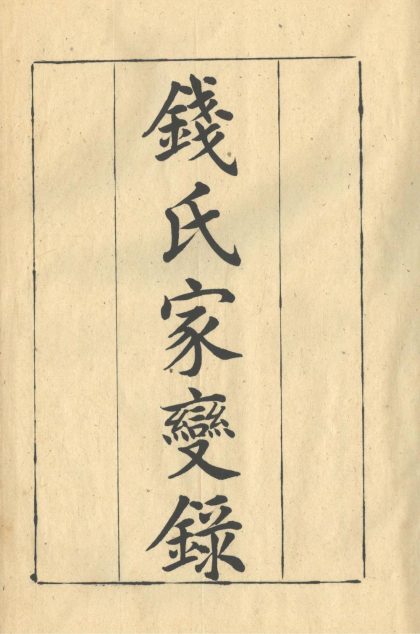 錢氏家變錄